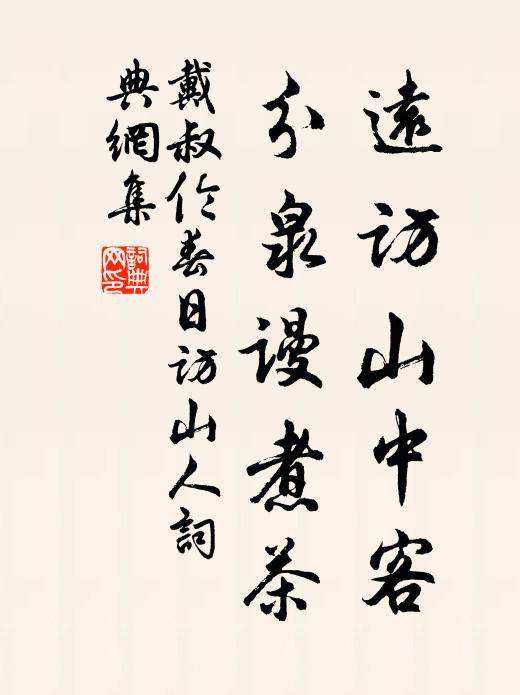 遠訪山中客
分泉謾煮茶
戴叔伦春日訪山人詞
典網集
詞典
网印